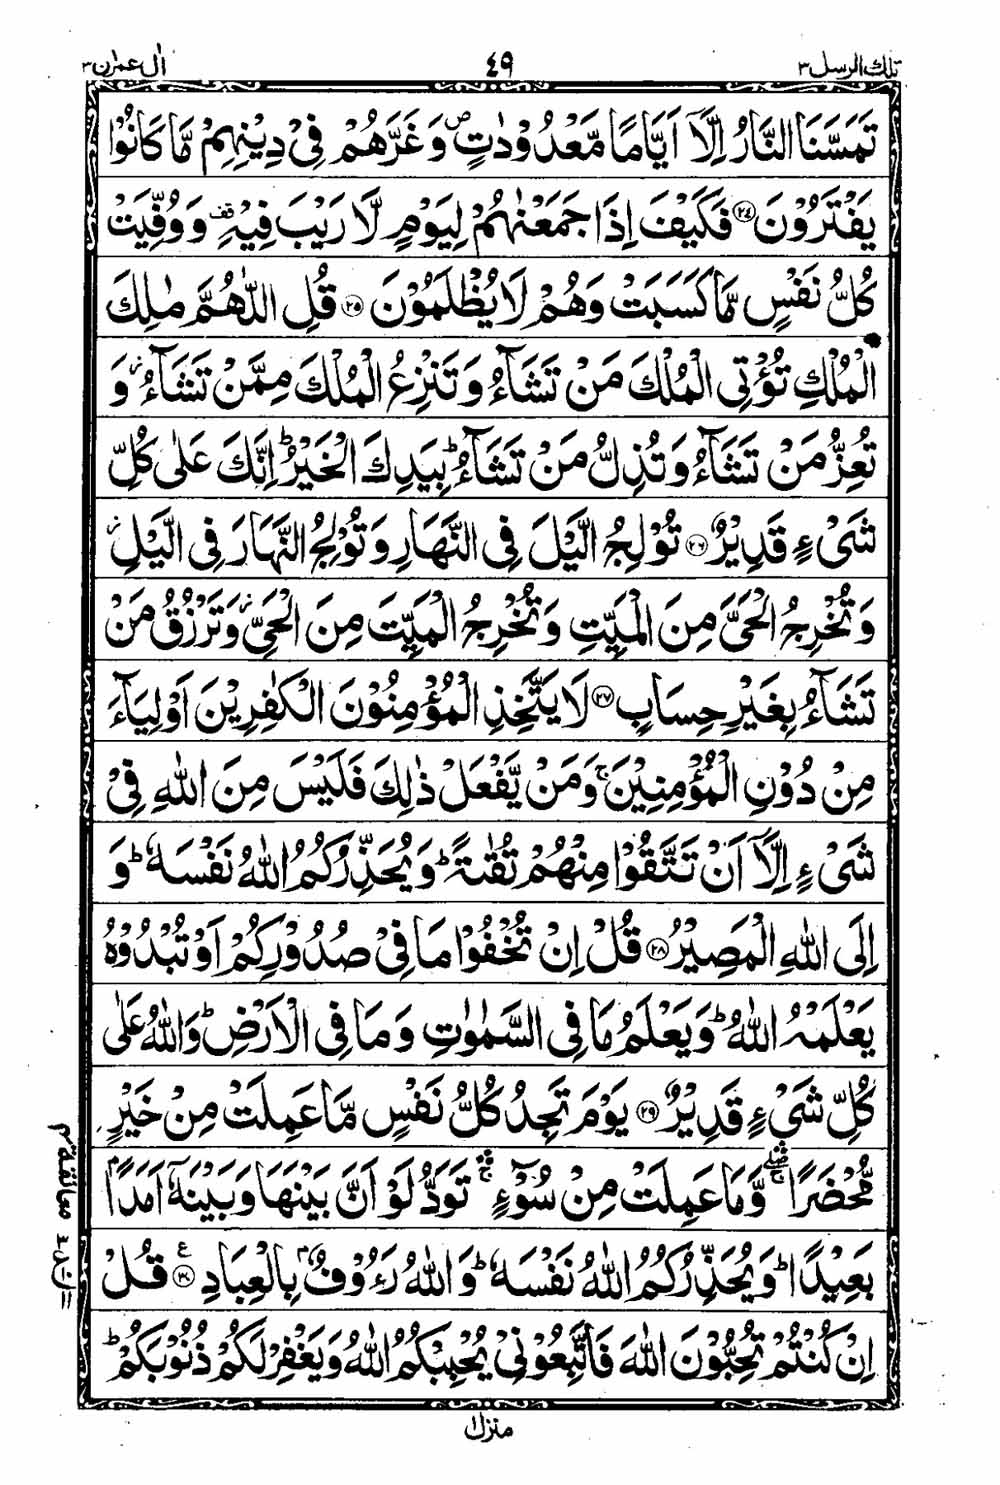 تلك الرسل ٣
٤٩
اٰل عمرٰن ٣
تَمَسَّنَا النَّارُ اِلَّاۤ اَيَّامًا مَّعْدُوْدٰتٍ ص وَغَرَّهُمْ فِيْ دِيْنِهِمْ مَّا كَانُوْا
يَفْتَرُوْنَ ﴿۲۴﴾ فَكَيْفَ اِذَا جَمَعْنٰهُمْ لِيَوْمٍ لَّا رَيْبَ فِيْهِ قف وَوُفِّيَتْ
كُلُّ نَفْسٍ مَّا كَسَبَتْ وَهُمْ لَا يُظْلَمُوْنَ ﴿۲۵﴾ قُلِ اللّٰهُمَّ مٰلِكَ
الْمُلْكِ تُؤْتِي الْمُلْكَ مَنْ تَشَآءُ وَتَنْزِعُ الْمُلْكَ مِمَّنْ تَشَآءُ ز وَ
تُعِزُّ مَنْ تَشَآءُ وَتُذِلُّ مَنْ تَشَآءُ ط بِيَدِكَ الْخَيْرُ ط اِنَّكَ عَلٰى كُلِّ
شَيْءٍ قَدِيْرٌ ﴿۲۶﴾ تُوْلِجُ الَّيْلَ فِي النَّهَارِ وَتُوْلِجُ النَّهَارَ فِي الَّيْلِ ز
وَتُخْرِجُ الْحَيَّ مِنَ الْمَيِّتِ وَتُخْرِجُ الْمَيِّتَ مِنَ الْحَيِّ ز وَتَرْزُقُ مَنْ
تَشَآءُ بِغَيْرِ حِسَابٍ ﴿۲۷﴾ لَا يَتَّخِذِ الْمُؤْمِنُوْنَ الْكٰفِرِيْنَ اَوْلِيَآءَ
مِنْ دُوْنِ الْمُؤْمِنِيْنَ ج وَمَنْ يَّفْعَلْ ذٰلِكَ فَلَيْسَ مِنَ اللّٰهِ فِيْ
شَيْءٍ اِلَّاۤ اَنْ تَتَّقُوْا مِنْهُمْ تُقٰىةً ط وَيُحَذِّرُكُمُ اللّٰهُ نَفْسَهٗ ط وَ
اِلَى اللّٰهِ الْمَصِيْرُ ﴿۲۸﴾ قُلْ اِنْ تُخْفُوْا مَا فِيْ صُدُوْرِكُمْ اَوْ تُبْدُوْهُ
يَعْلَمْهُ اللّٰهُ ط وَيَعْلَمُ مَا فِي السَّمٰوٰتِ وَمَا فِي الْاَرْضِ ط وَاللّٰهُ عَلٰى
كُلِّ شَيْءٍ قَدِيْرٌ ﴿۲۹﴾ يَوْمَ تَجِدُ كُلُّ نَفْسٍ مَّا عَمِلَتْ مِنْ خَيْرٍ
مُّحْضَرًا وَّمَا عَمِلَتْ مِنْ سُوْٓءٍ تَوَدُّ لَوْ اَنَّ بَيْنَهَا وَبَيْنَهٗۤ اَمَدًا
بَعِيْدًا ط وَيُحَذِّرُكُمُ اللّٰهُ نَفْسَهٗ ط وَاللّٰهُ رَءُوْفٌۢ بِالْعِبَادِ ﴿۳۰﴾ ع قُلْ
اِنْ كُنْتُمْ تُحِبُّوْنَ اللّٰهَ فَاتَّبِعُوْنِيْ يُحْبِبْكُمُ اللّٰهُ وَيَغْفِرْ لَكُمْ ذُنُوْبَكُمْ ط
منزل ١